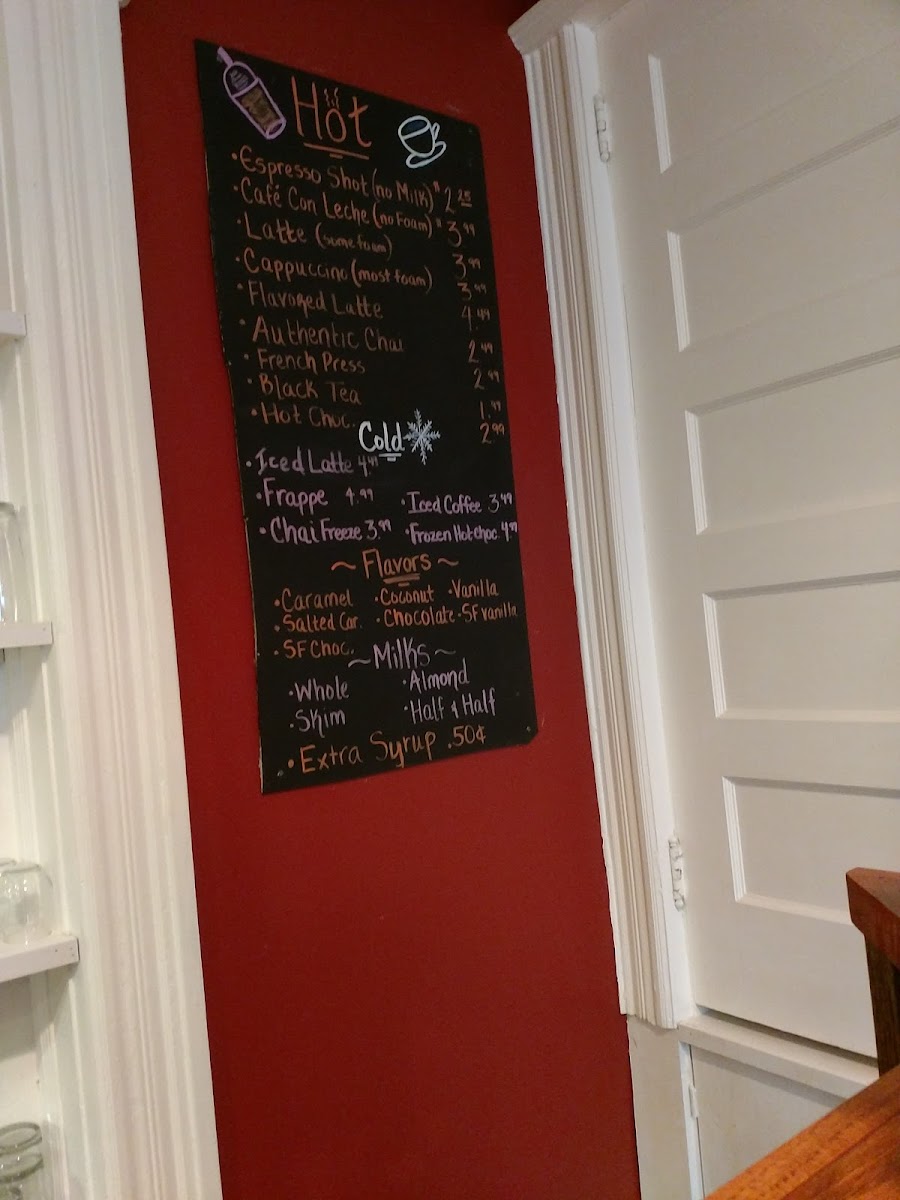 Hot
•Espresso Shot (no Milk) $2.25
•Café Con Leche (no Foam) $3.99
•Latte (some foam) 3.99
•Cappuccino (most foam) 3.99
•Flavored Latte 4.49
•Authentic Chai 2.49
•French Press 2.99
•Black Tea 1.99
•Hot Choc. 2.99
Cold
•Iced Latte 4.49
•Frappe 4.99 •Iced Coffee 3.49
•Chai Freeze 3.99 •Frozen Hot choc. 4.99
~Flavors~
•Caramel •Coconut •Vanilla
•Salted Car. •Chocolate •SF vanilla
•SF Choc.
~Milks~
•Whole •Almond
•Skim •Half & Half
•Extra Syrup .50¢